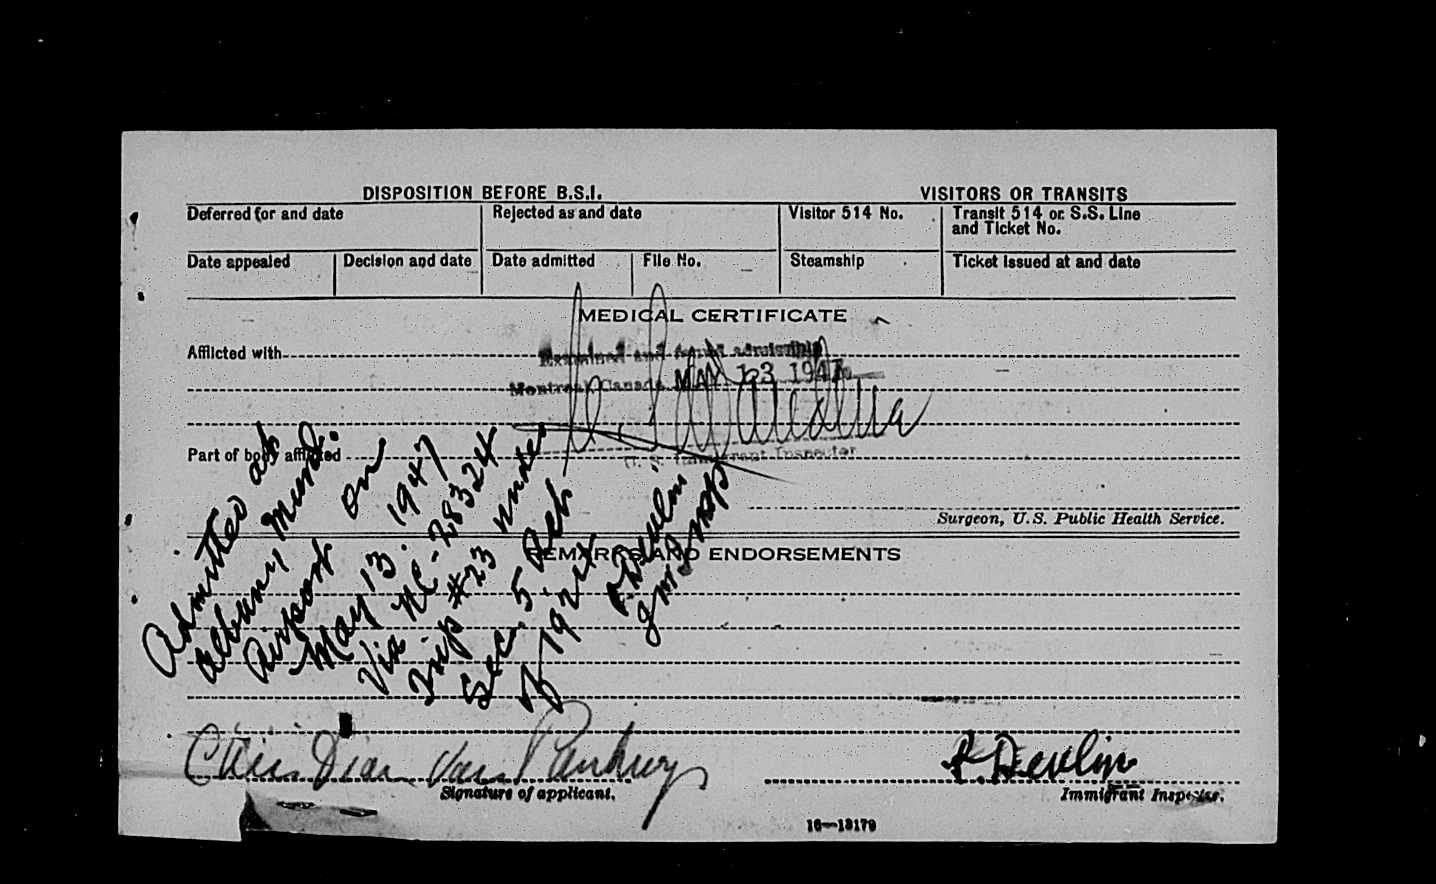 DISPOSITION BEFORE B.S.I.
VISITORS OR TRANSITS
Deferred for and date
Rejected as and date
Visitor 514 No.
Transit 514 or S.S. Line
and Ticket No.
Date appealed
Decision and date
Date admitted
File No.
Steamship
Ticket issued at and date
MEDICAL CERTIFICATE
Afflicted with
Examined and found admissible
Montreal Canada MAY 13 1947
Part of body afflicted
U. S. Immigrant Inspector
Surgeon, U.S. Public Health Service.
REMARKS AND ENDORSEMENTS
Admitted at
Albany Mund.
Airport on
May 13 1947
Via NC-28324
Trip #23 under
Sec. 5 Act
of 1924
P. Devlin
Im Insp
Van
Signature of applicant.
P. Devlin
Immigrant Inspector.
16—13179